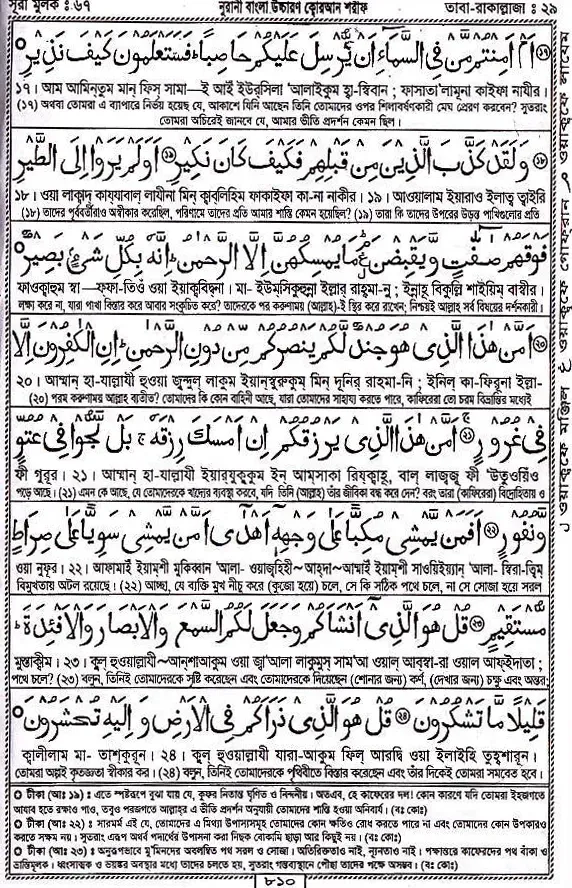 সূরা মুলক : ৬৭ নূরানী বাংলা উচ্চারণ কোরআন শরীফ তাবা-রাকাল্লাজা : ২৯
أَمْ أَمِنْتُمْ مَّنْ فِي السَّمَاءِ أَنْ يُّرْسِلَ عَلَيْكُمْ حَاصِبًا ۖ فَسَتَعْلَمُونَ كَيْفَ نَذِيرِ
১৭। আম আমিন্তুম মান্ ফিস্ সামা—ই আইঁ ইউরসিলা 'আলাইকুম হ্বা-স্বিবান ; ফাসাতা'লামূনা কাইফা নাযীর।
(১৭) অথবা তোমরা এ ব্যাপারে নির্ভয় হয়েছ যে, আকাশে যিনি আছেন তিনি তোমাদের ওপর শিলাবর্ষণকারী মেঘ প্রেরণ করবেন? সুতরাং
তোমরা অচিরেই জানবে যে, আমার ভীতি প্রদর্শন কেমন ছিল।
وَلَقَدْ كَذَّبَ الَّذِينَ مِنْ قَبْلِهِمْ فَكَيْفَ كَانَ نَكِيرِ ۝ أَوَلَمْ يَرَوْا إِلَى الطَّيْرِ
১৮। ওয়া লাক্বাদ্ কায্যাবাল্ লাযীনা মিন্ ক্বাবলিহিম ফাকাইফা কা-না নাকীর। ১৯। আওয়ালাম ইয়ারাও ইলাত্ব ত্বাইরি
(১৮) তাদের পূর্ববর্তীরাও অস্বীকার করেছিল, পরিণামে তাদের প্রতি আমার শাস্তি কেমন হয়েছিল? (১৯) তারা কি তাদের উপরের উড়ন্ত পাখিগুলোর প্রতি
فَوْقَهُمْ صَافَّاتٍ وَّيَقْبِضْنَ ۘ مَا يُمْسِكُهُنَّ إِلَّا الرَّحْمٰنُ ۚ إِنَّهُ بِكُلِّ شَيْءٍ بَصِيرٌ
ফাওক্বাহুম স্বা—ফফা-তিওঁ ওয়া ইয়াক্ববিদ্বনা। মা- ইউমসিকুহুন্না ইল্লার্ রাহ্মা-নু ; ইন্নাহূ বিকুল্লি শাইয়িম্ বাস্বীর।
লক্ষ্য করে না, যারা পাখা বিস্তার করে আবার সংকুচিত করে? তাদেরকে পরম করুণাময় (আল্লাহ)-ই স্থির করে রাখেন; নিশ্চয়ই আল্লাহ সর্ব বিষয়ের দর্শনকারী।
أَمَّنْ هٰذَا الَّذِي هُوَ جُنْدٌ لَّكُمْ يَنْصُرُكُمْ مِّنْ دُونِ الرَّحْمٰنِ ۚ إِنِ الْكَافِرُونَ إِلَّا
২০। আম্মান্ হা-যাল্লাযী হুওয়া জুন্দুল লাকুম ইয়ান্স্বুরুকুম্ মিন্ দূনির্ রাহমা-নি ; ইনিল্ কা-ফিরূনা ইল্লা-
(২০) পরম করুণাময় আল্লাহ ব্যতীত? তোমাদের কি কোন বাহিনী আছে, যারা তোমাদের সাহায্য করতে পারে, কাফিরেরা তো চরম বিভ্রান্তির মধ্যেই
فِي غُرُورٍ ۝ أَمَّنْ هٰذَا الَّذِي يَرْزُقُكُمْ إِنْ أَمْسَكَ رِزْقَهُ ۚ بَلْ لَّجُّوا فِي عُتُوٍّ
ফী গুরূর। ২১। আম্মান্ হা-যাল্লাযী ইয়ার্যুকুকুম ইন্ আম্সাকা রিয্ক্বাহূ, বাল্ লাজ্জূ ফী 'উতুওয়িঁও
পড়ে আছে। (২১) এমন কে আছে, যে তোমাদেরকে খাদ্যের ব্যবস্থা করবে, যদি তিনি (আল্লাহ) তাঁর জীবিকা বন্ধ করে দেন? বরং তারা (কাফিরেরা) বিদ্রোহিতায় ও
وَّنُفُورٍ ۝ أَفَمَنْ يَّمْشِي مُكِبًّا عَلَىٰ وَجْهِهِ أَهْدَىٰ أَمَّنْ يَّمْشِي سَوِيًّا عَلَىٰ صِرَاطٍ
ওয়া নুফূর। ২২। আফামাইঁ ইয়ামশী মুকিব্বান 'আলা- ওয়াজহিহী~আহদা~আম্মাইঁ ইয়ামশী সাওয়িইয়্যান্ 'আলা- স্বিরা-ত্বিম্
বিমুখতায় অটল রয়েছে। (২২) আচ্ছা, যে ব্যক্তি মুখ নীচু করে (কুঁজো হয়ে) চলে, সে কি সঠিক পথে চলে, না সে সোজা হয়ে সরল
مُّسْتَقِيمٍ ۝ قُلْ هُوَ الَّذِي أَنْشَأَكُمْ وَجَعَلَ لَكُمُ السَّمْعَ وَالْأَبْصَارَ وَالْأَفْئِدَةَ ۖ
মুস্তাক্বীম। ২৩। কুল্ হুওয়াল্লাযী~আন্শাআকুম ওয়া জ্বা'আলা লাকুমুস্ সাম'আ ওয়াল্ আব্স্বা-রা ওয়াল আফ্ইদাতা ;
পথে চলে? (২৩) বলুন, তিনিই তোমাদেরকে সৃষ্টি করেছেন এবং তোমাদেরকে দিয়েছেন (শোনার জন্য) কর্ণ, (দেখার জন্য) চক্ষু এবং অন্তর;
قَلِيلًا مَّا تَشْكُرُونَ ۝ قُلْ هُوَ الَّذِي ذَرَأَكُمْ فِي الْأَرْضِ وَإِلَيْهِ تُحْشَرُونَ
ক্বালীলাম মা- তাশ্কুরূন। ২৪। কুল্ হুওয়াল্লাযী যারা-আকুম ফিল্ আরদ্বি ওয়া ইলাইহি তুহ্শারূন।
তোমরা অল্পই কৃতজ্ঞতা স্বীকার কর। (২৪) বলুন, তিনিই তোমাদেরকে পৃথিবীতে বিস্তার করেছেন এবং তাঁর দিকেই তোমরা সমবেত হবে।
টীকা (আঃ ১৯) : এতে স্পষ্টরূপে বুঝা যায় যে, কুফর নিতান্ত ঘৃণিত ও নিন্দনীয়। অতএব, হে কাফেরের দল! কোন কারণে যদি তোমরা ইহজগতে
আযাব হতে রক্ষাও পাও, তবুও পরজগতে আল্লাহর এ ভীতি প্রদর্শন অনুযায়ী তোমাদের শাস্তি হওয়া অনিবার্য। (বঃ কোঃ)
টীকা (আঃ ২২) : সারমর্ম এই যে, তোমাদের এ মিথ্যা উপাস্যসমূহ তোমাদের কোন ক্ষতিও রোধ করতে পারে না এবং তোমাদের কোন উপকারও
করতে সক্ষম নয়। সুতরাং এরূপ অথর্ব পদার্থের উপাসনা করা নিছক বোকামি ছাড়া আর কিছুই নয়। (বঃ কোঃ)
টীকা (আঃ ২৩) : অনুরূপভাবে মু'মিনদের অবলম্বিত পথ সরল ও সোজা। অতিরিক্ততাও নাই, ন্যূনতাও নাই। পক্ষান্তরে কাফেরদের পথ বাঁকা ও
ভ্রান্তিমূলক। ধ্বংসাত্মক ও ভয়ঙ্কর অবস্থার মধ্যে তাদের চলতে হয়, সুতরাং গন্তব্যস্থানে পৌঁছা তাদের পক্ষে অসম্ভব। (বঃ কোঃ)
৮১০